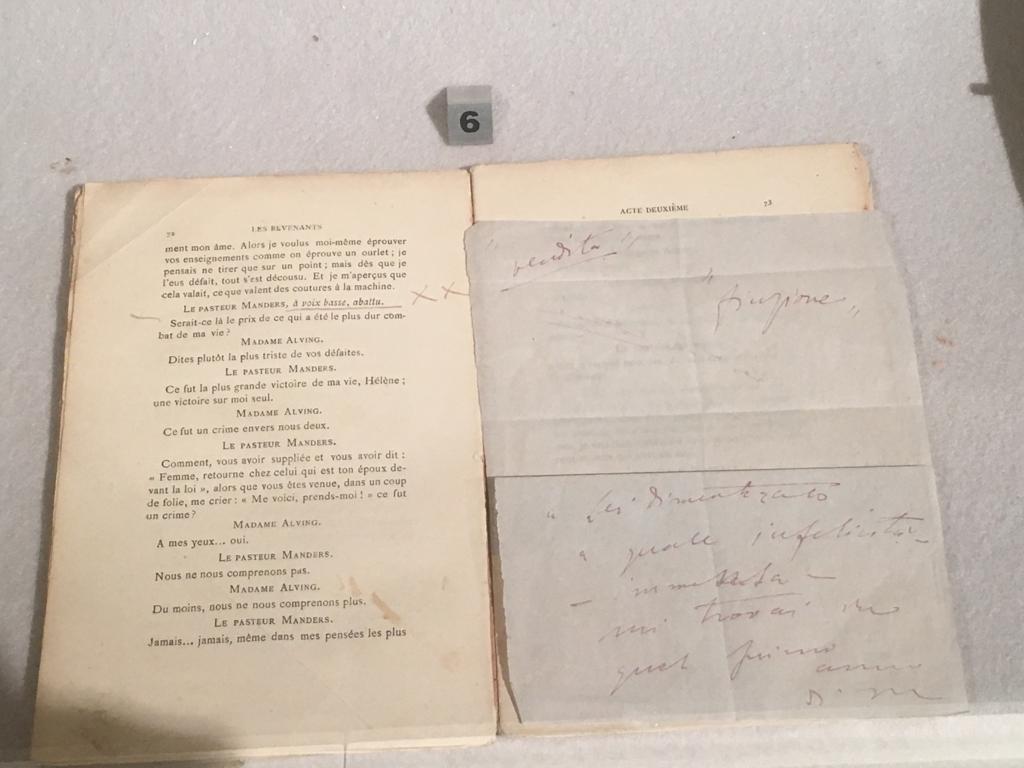 6
72 LES REVENANTS
ment mon âme. Alors je voulus moi-même éprouver
vos enseignements comme on éprouve un ourlet ; je
pensais ne tirer que sur un point ; mais dès que je
l'eus défait, tout s'est décousu. Et je m'aperçus que
cela valait, ce que valent des coutures à la machine.
LE PASTEUR MANDERS, à voix basse, abattu.
XX
Serait-ce là le prix de ce qui a été le plus dur com-
bat de ma vie ?
MADAME ALVING.
Dites plutôt la plus triste de vos défaites.
LE PASTEUR MANDERS.
Ce fut la plus grande victoire de ma vie, Hélène ;
une victoire sur moi seul.
MADAME ALVING.
Ce fut un crime envers nous deux.
LE PASTEUR MANDERS.
Comment, vous avoir suppliée et vous avoir dit :
« Femme, retourne chez celui qui est ton époux de-
vant la loi », alors que vous êtes venue, dans un coup
de folie, me crier : « Me voici, prends-moi ! » ce fut
un crime ?
MADAME ALVING.
A mes yeux... oui.
LE PASTEUR MANDERS.
Nous ne nous comprenons pas.
MADAME ALVING.
Du moins, nous ne nous comprenons plus.
LE PASTEUR MANDERS.
Jamais... jamais, même dans mes pensées les plus
ACTE DEUXIÈME 73
"vendita"
"finzione"
quale infelicità
mi trovai
quel primo
anno